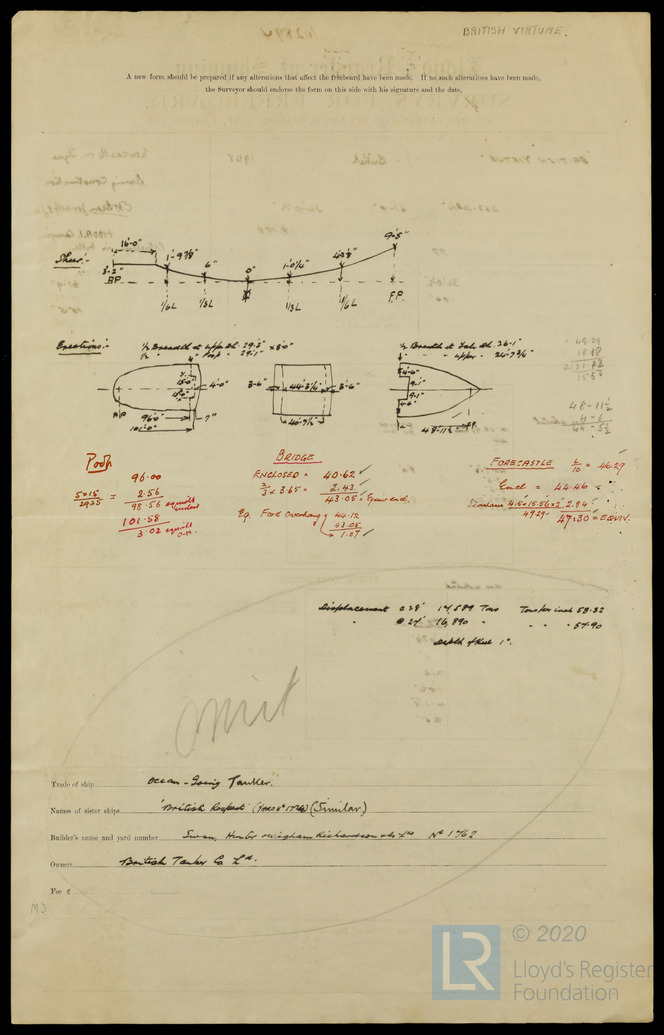 BRITISH VIRTUE.
A new form should be prepared if any alterations that affect the freeboard have been made. If no such alterations have been made,
the Surveyor should endorse the form on this side with his signature and the date.
Sheer:-
16'-0"
3'-2"
1'-9⅞"
6"
0"
1'-0¼"
9'-5"
A.P.
1/6 L
1/3 L
1/3 L
1/6 L
F.P.
Erections:-
½ Breadth at upp Dk. 29'-3" x 8'-0"
½ " " Poop " 29'-1"
½ Breadth at Fcle Dk. 26'-1"
" " upper " 24'-7¾"
4'-0"
3'-6"
44'-3¾"
3'-6"
4'-6"
9'-1"
9'-1"
4'-6"
A/P
96'-0"
7"
101'-0"
40'-7½"
48'-11½"
F.P.
48-11½
Poop
96.00
5 x 15 / 29.25 = 2.56
98.56
101.58
3.02
BRIDGE
ENCLOSED = 40.62
2/3 x 3.65 = 2.43
43.05 = Equiv end.
Eq. Ford Overhang 44.12
43.05
1.07
FORECASTLE L/10 = 46.29
Encl = 44.46
2.84
47.30 = EQUIV.
Displacement @ 28' 17,589 Tons Tons per inch 58.32
" @ 27' 16,890 " " " " 57.90
Depth of Keel 1".
omit
Trade of ship Ocean-Going Tanker.
Names of sister ships 'British Respect' (Yard No 1726) (Similar)
Builder's name and yard number Swan, Hunter & Wigham Richardson & Co Ltd No 1762
Owners British Tanker Co Ld.
Fee £
LR
© 2020
Lloyd's Register
Foundation